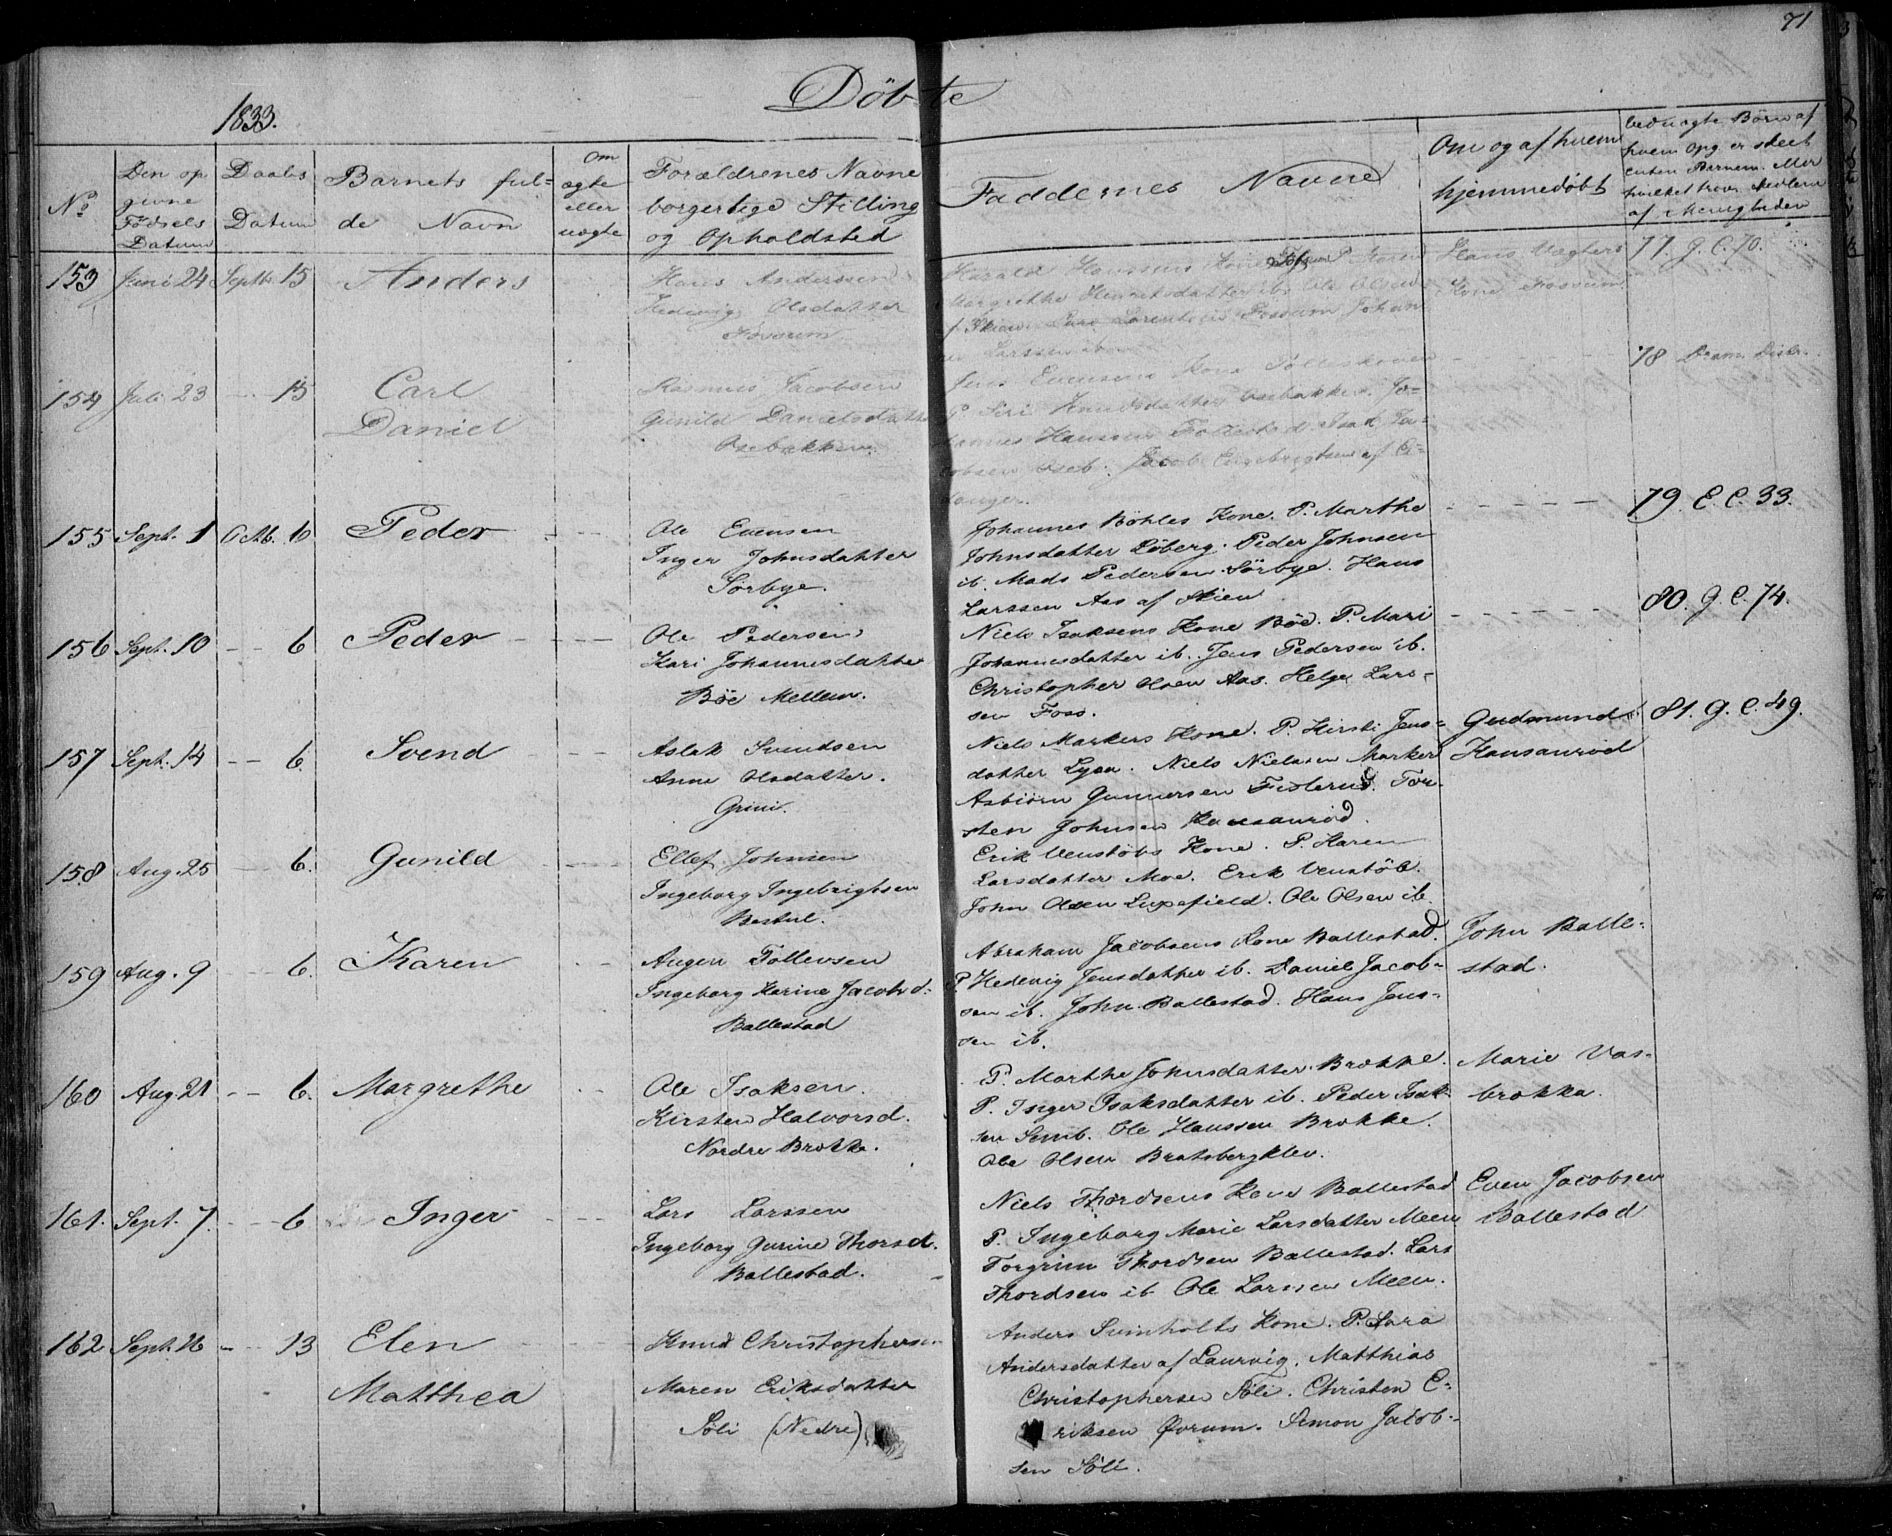 71
Döbte
1833.
No
Den op
givne
Födsels
Datum
Daabs
Datum
Barnets ful-
de Navn
om
ægte
eller
uægte
Forældrenes Navne
borgerlige Stilling
og Opholdsted
Faddernes Navne
Om og af hvem
hjemmedöbt
hvem opg er skeet
af Menigheden
153 Juni 24 Septb. 15 Anders
Hans Anderssen
Hedevig Olsdatter
Fossum
Harald Hanssens Kone
Margrethe
Larssen ib.
Hans Vægters
Kone Fossum
77. g. C. 70.
154 Juli 23 - - 15 Carl
Daniel
Rasmus Jacobsen
Gunild Danielsdatter
Osebakken
Jens Evensens Kone
P. Siri Knudsdatter Osebakken. Jo-
hannes Hanssen
cobsen Oseb. Jacob Engebregtsen af Ei-
danger.
78 Dram. Distr.
155 Sept. 1 Octb. 6 Peder
Ole Evensen
Inger Johnsdatter
Sörbye.
Johannes Böhles Kone. P. Marthe
Johnsdatter Löberg. Peder Johnsen
ib. Mads Pedersen Sörbye. Hans
Larssen Aas af Skien
79. E. C. 33.
156 Sept. 10 - - 6 Peder
Ole Pedersen
Kari Johannesdatter
Böe Mellem.
Niels Isaksens Kone Böe. P. Mari
Johannesdatter ib. Jens Pedersen ib.
Christopher Olsen Aas. Helge Lars-
sen Foss.
80. g. C. 74.
157 Sept. 14 - - 6. Svend
Aslak Svendsen
Anne Olsdatter.
Grini.
Niels Markers Kone. P. Kirsti Jens-
datter Lysa. Niels Nielssen Marker
Asbiörn Gunnersen Fislerud. Tor-
sten Johnsen Hansanröd.
Gudmund
Hansanröd
81. g. C. 49.
158 Aug. 25 - - 6. Gunild
Ellef Johnsen
Ingeborg Ingebrightsen
Bestul.
Erik Venstöbs Kone. P. Karen
Larsdatter Moe. Erik Venstöb.
John Olsen Luxefield. Ole Olsen ib.
159 Aug. 9 - - 6. Karen
Augen Töllevsen
Ingeborg Karine Jacobsd.
Ballestad
Abraham Jacobsens Kone Ballestad.
P. Hedevig Jensdatter ib. Daniel Jacob-
sen ib. John Ballestad. Hans Jens-
sen ib.
John Balle-
stad.
160 Aug 21 - - 6. Margrethe
Ole Isaksen.
Kirsten Halvorsd.
Nordre Brokke.
P. Marthe Johnsdatter Brokke.
P. Inger Isaksdatter ib. Peder Isak-
sen Semb. Ole Hanssen Brokke.
Ole Olsen Bratsbergklev.
Marie Vas-
brokka.
161. Sept. 7. - - 6 Inger
Lars Larssen
Ingeborg Gurine Thorsd.
Ballestad.
Niels Thordsens Kone Ballestad
P. Ingeborg Marie Larsdatter Meen
Torgrim Thordsen Ballestad. Lars
Thordsen ib Ole Larssen Meen.
Even Jacobsen
Ballestad
162 Sept. 16 - - 13 Elen
Matthea
Knud Christophersen
Maren Eriksdatter
Söli (Nedre)
Anders Svinholts Kone. P. Sara
Andersdatter af Laurvig. Matthias
Christophersen Söli. Christen E-
riksen Övrum. Simon Jacob-
sen Söli.